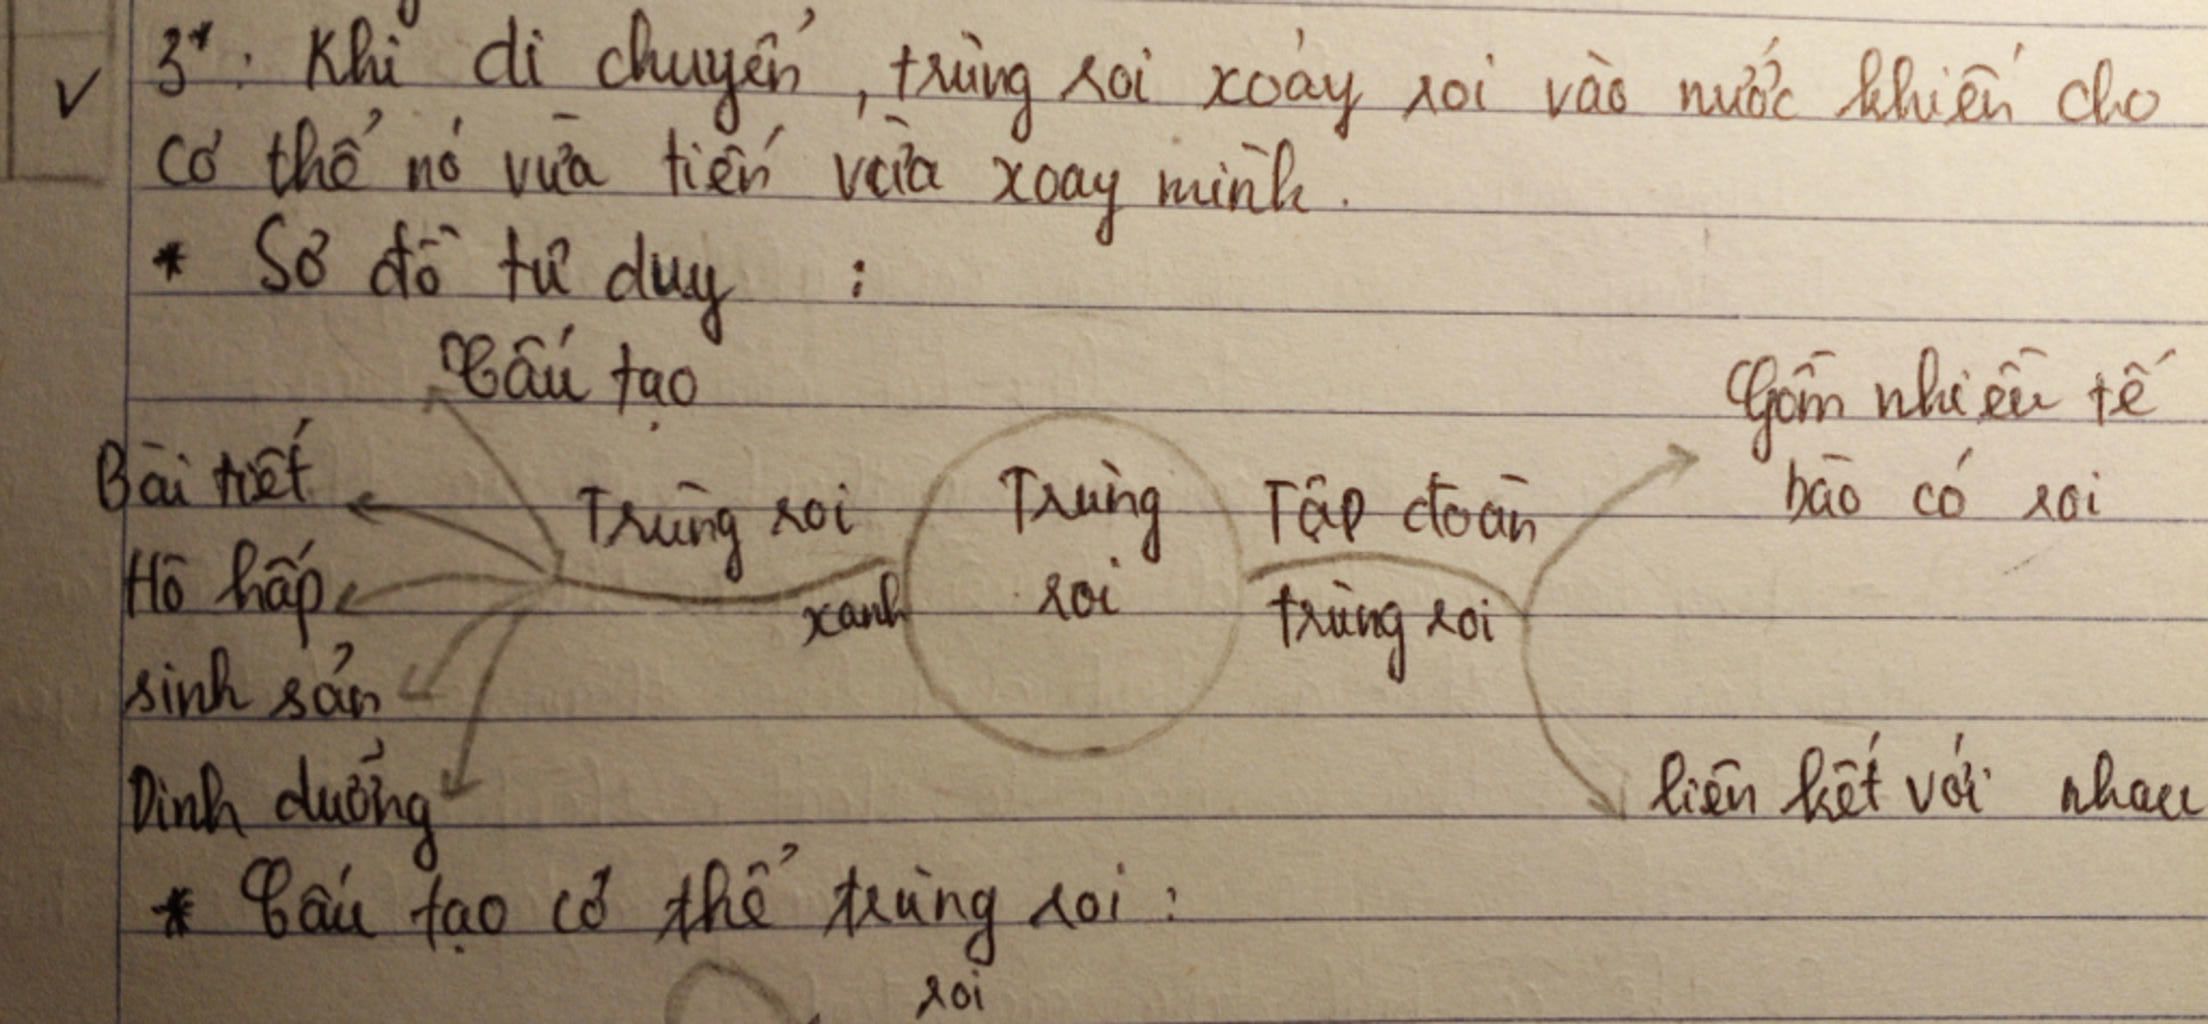 3*: Khi di chuyển, trùng roi xoáy roi vào nước khiến cho
cơ thể nó vừa tiến vừa xoay mình.
* Sơ đồ tư duy :
Cấu tạo
Bài tiết
Hô hấp
sinh sản
Dinh dưỡng
Trùng roi
xanh
Trùng
roi
Tập đoàn
trùng roi
Gồm nhiều tế
bào có roi
liên kết với nhau
* Cấu tạo cơ thể trùng roi :
roi